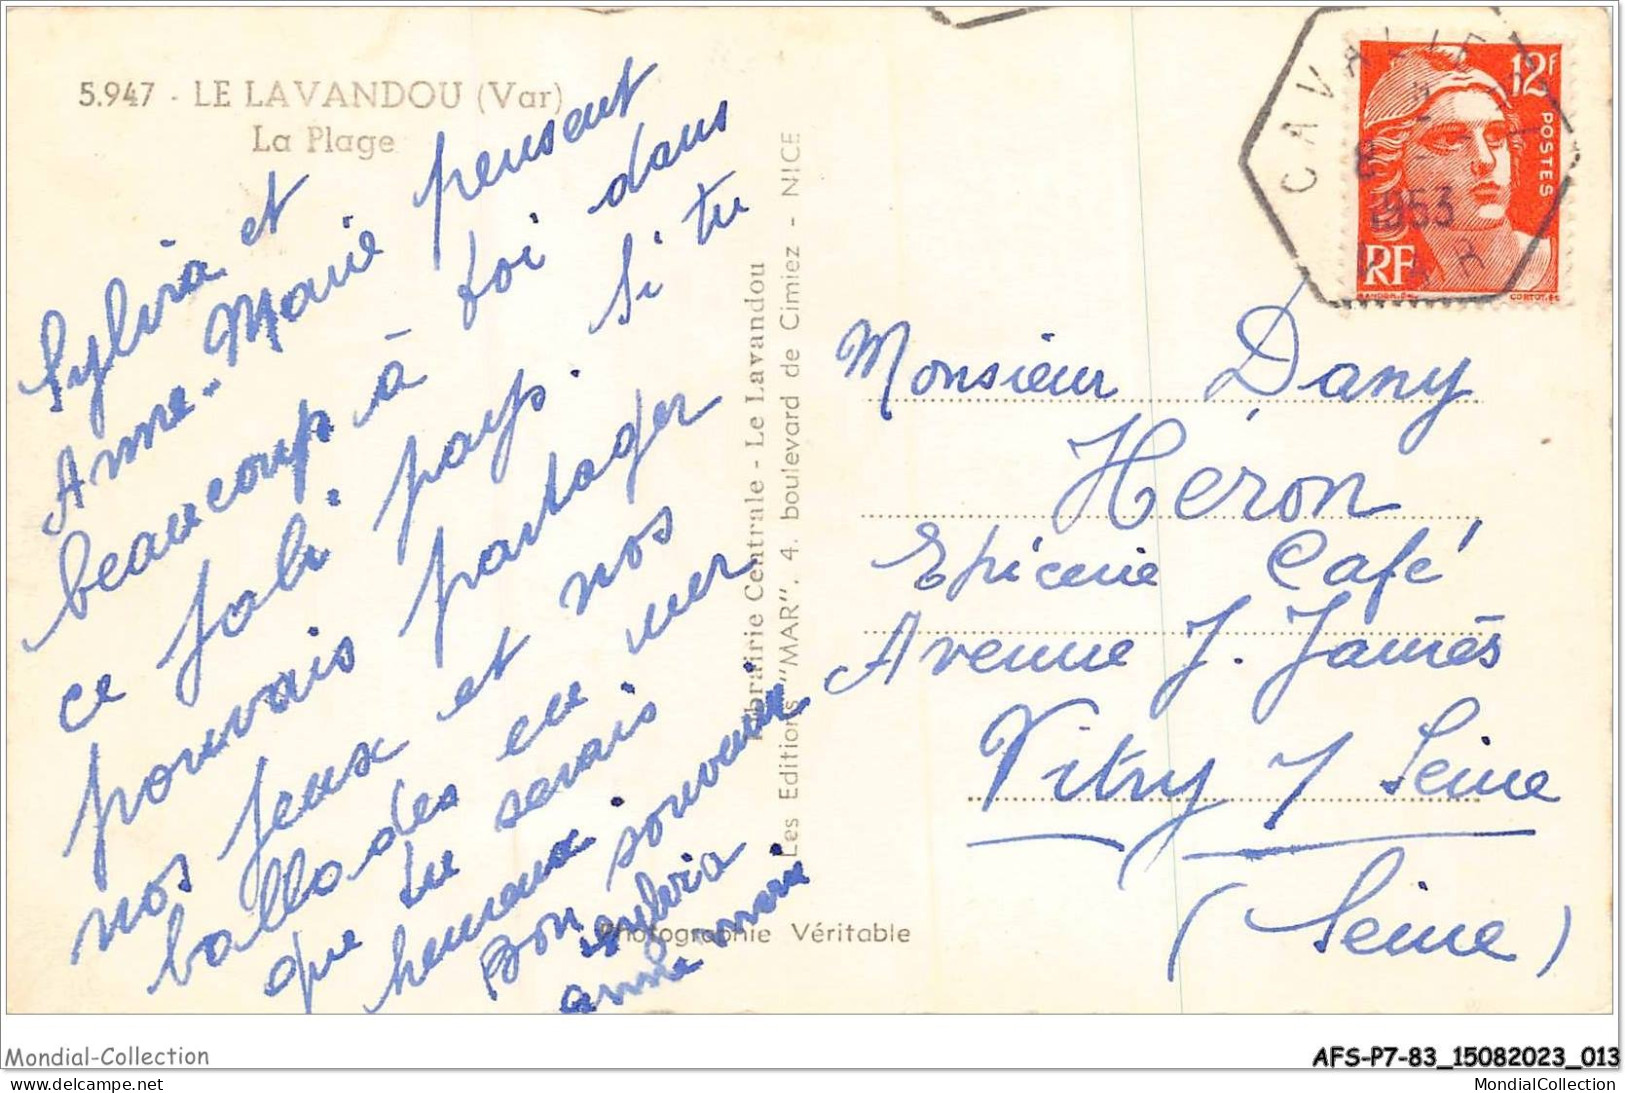 5.947 - LE LAVANDOU (Var)
La Plage
Sylvia et
Anne-Marie pensent
beaucoup à toi dans
ce joli pays. Si tu
pouvais partager
nos jeux et nos
ballades en mer
que tu serais
heureux.
Bon souvenir
Sylvia
anne marie
Librairie Centrale - Le Lavandou
Les Editions "MAR". 4. boulevard de Cimiez - NICE
Photographie Véritable
CAVALIERE
8
1953
VAR
12F
POSTES
RF
GANDON
CORTOT
Monsieur Dany
Héron
Epicerie Café
Avenue J. Jaurès
Vitry / Seine
(Seine)
Mondial-Collection
AFS-P7-83_15082023_013
MondialCollection